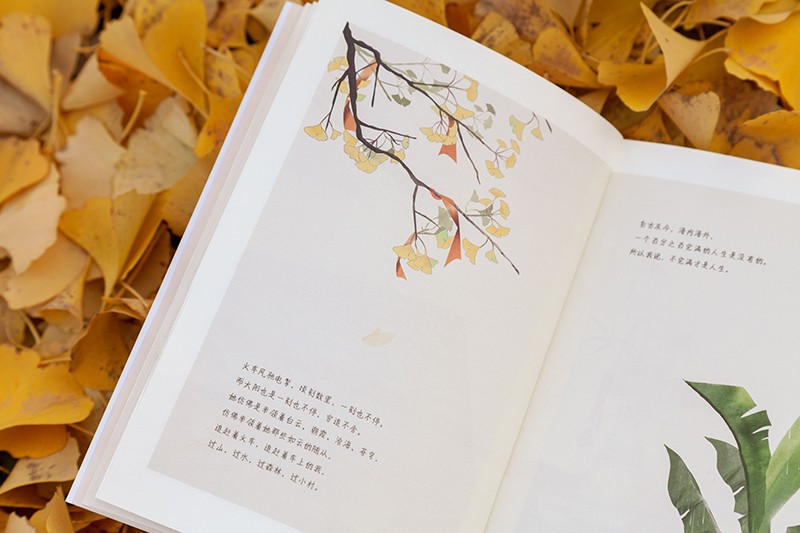 火车风驰电掣，顷刻数里，一刻也不停。
而太阳也是一刻也不停，穷追不舍。
她仿佛是率领着白云、朝霞、沧海、苍穹，
仿佛率领着她那些如云的随从，
追赶着火车，追赶着车上的我，
过山，过水，过森林，过小村。
自古至今，海内海外，
一个百分之百完满的人生是没有的。
所以我说，不完满才是人生。